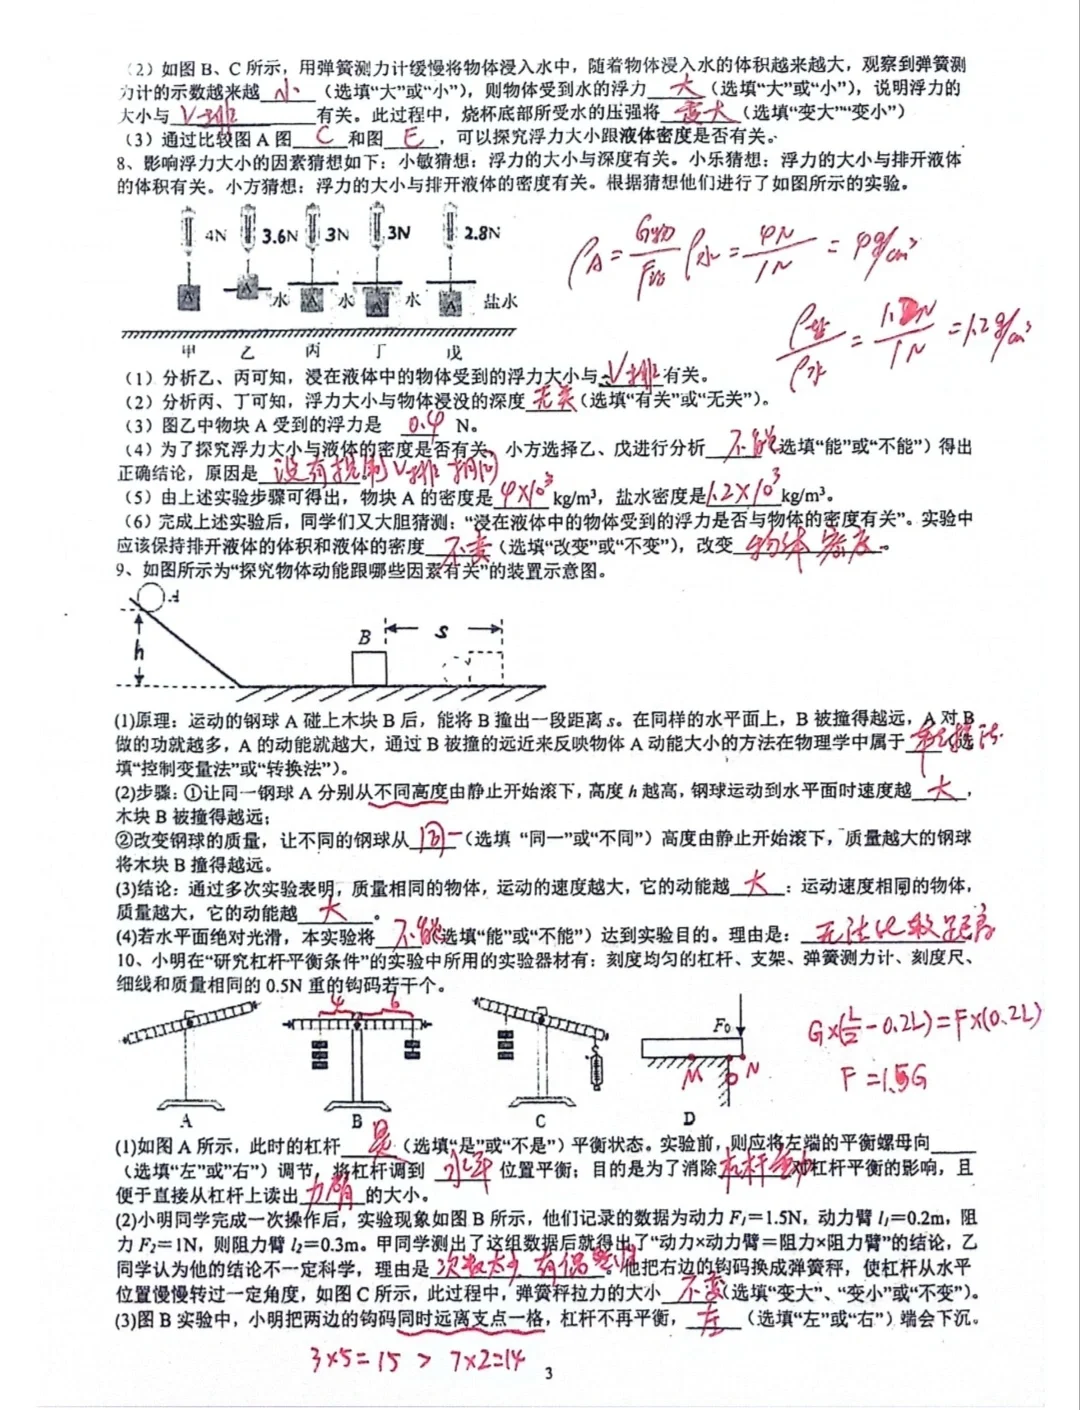 (2）如图 B、C 所示，用弹簧测力计缓慢将物体浸入水中，随着物体浸入水的体积越来越大，观察到弹簧测
力计的示数越来越 小 （选填“大”或“小”），则物体受到水的浮力 大 （选填“大”或“小”），说明浮力的
大小与 V排 有关。此过程中，烧杯底部所受水的压强将 变大 （选填“变大”“变小”）
(3）通过比较图 A 图 C 和图 E ，可以探究浮力大小跟液体密度是否有关。
8、影响浮力大小的因素猜想如下：小敏猜想：浮力的大小与深度有关。小乐猜想：浮力的大小与排开液体
的体积有关。小方猜想：浮力的大小与排开液体的密度有关。根据猜想他们进行了如图所示的实验。
4N 3.6N 3N 3N 2.8N
ρA = G物/F浮 ρ水 = 4N/1N = 4g/cm³
A A A A A
水 水 水 盐水
ρ盐/ρ水 = 1.2N/1N = 1.2g/cm³
甲 乙 丙 丁 戊
(1）分析乙、丙可知，浸在液体中的物体受到的浮力大小与 V排 有关。
(2）分析丙、丁可知，浮力大小与物体浸没的深度 无关 （选填“有关”或“无关”）。
(3）图乙中物块 A 受到的浮力是 0.4 N。
(4）为了探究浮力大小与液体的密度是否有关，小方选择乙、戊进行分析 不能 选填“能”或“不能”）得出
正确结论，原因是 没有控制V排相同
(5）由上述实验步骤可得出，物块 A 的密度是 4×10³ kg/m³，盐水密度是 1.2×10³ kg/m³。
(6）完成上述实验后，同学们又大胆猜测：“浸在液体中的物体受到的浮力是否与物体的密度有关”。实验中
应该保持排开液体的体积和液体的密度 不变 （选填“改变”或“不变”），改变 物体密度 。
9、如图所示为“探究物体动能跟哪些因素有关”的装置示意图。
A
h B s
(1)原理：运动的钢球 A 碰上木块 B 后，能将 B 撞出一段距离 s。在同样的水平面上，B 被撞得越远，A 对 B
做的功就越多，A 的动能就越大，通过 B 被撞的远近来反映物体 A 动能大小的方法在物理学中属于 转换法 （选
填“控制变量法”或“转换法”）。
(2)步骤：①让同一钢球 A 分别从不同高度由静止开始滚下，高度 h 越高，钢球运动到水平面时速度越 大 ，
木块 B 被撞得越远；
②改变钢球的质量，让不同的钢球从 同一 （选填 “同一”或“不同”）高度由静止开始滚下，质量越大的钢球
将木块 B 撞得越远。
(3)结论：通过多次实验表明，质量相同的物体，运动的速度越大，它的动能越 大 ；运动速度相同的物体，
质量越大，它的动能越 大 。
(4)若水平面绝对光滑，本实验将 不能 选填“能”或“不能”）达到实验目的。理由是： 无法比较距离
10、小明在“研究杠杆平衡条件”的实验中所用的实验器材有：刻度均匀的杠杆、支架、弹簧测力计、刻度尺、
细线和质量相同的 0.5N 重的钩码若干个。
4 6
F₀
M O N
G×(L/2-0.2L)=F×(0.2L)
F=1.5G
A B C D
(1)如图 A 所示，此时的杠杆 是 （选填“是”或“不是”）平衡状态。实验前，则应将左端的平衡螺母向
（选填“左”或“右”）调节，将杠杆调到 水平 位置平衡；目的是为了消除 杠杆重力 对杠杆平衡的影响，且
便于直接从杠杆上读出 力臂 的大小。
(2)小明同学完成一次操作后，实验现象如图 B 所示，他们记录的数据为动力 F₁＝1.5N，动力臂 l₁＝0.2m，阻
力 F₂＝1N，则阻力臂 l₂＝0.3m。甲同学测出了这组数据后就得出了“动力×动力臂＝阻力×阻力臂”的结论，乙
同学认为他的结论不一定科学，理由是 次数太少，有偶然性 。他把右边的钩码换成弹簧秤，使杠杆从水平
位置慢慢转过一定角度，如图 C 所示，此过程中，弹簧秤拉力的大小 不变 （选填“变大”、“变小”或“不变”）。
(3)图 B 实验中，小明把两边的钩码同时远离支点一格，杠杆不再平衡， 左 （选填“左”或“右”）端会下沉。
3×5=15 > 7×2=14
3